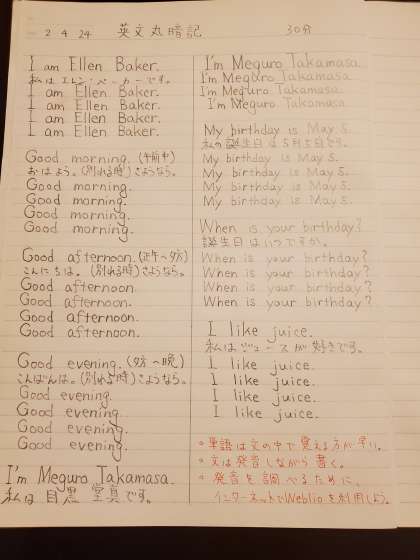 2 4 24 英文丸暗記 30分
I am Ellen Baker.
私は エレン・ベーカーです。
I am Ellen Baker.
I am Ellen Baker.
I am Ellen Baker.
I am Ellen Baker.
Good morning. (午前中)
おはよう。(別れる時)さようなら。
Good morning.
Good morning.
Good morning.
Good morning.
Good afternoon. (正午〜夕方)
こんにちは。(別れる時)さようなら。
Good afternoon.
Good afternoon.
Good afternoon.
Good afternoon.
Good evening. (夕方〜晩)
こんばんは。(別れる時)さようなら。
Good evening.
Good evening.
Good evening.
Good evening.
I'm Meguro Takamasa.
私は 目黒 です。
I'm Meguro Takamasa.
I'm Meguro Takamasa.
I'm Meguro Takamasa.
I'm Meguro Takamasa.
My birthday is May 5.
私の誕生日は5月5日です。
My birthday is May 5.
My birthday is May 5.
My birthday is May 5.
My birthday is May 5.
When is your birthday?
誕生日はいつですか。
When is your birthday?
When is your birthday?
When is your birthday?
When is your birthday?
I like juice.
私はジュースが好きです。
I like juice.
I like juice.
I like juice.
I like juice.
。単語は文の中で覚える方が早い。
。文は発音しながら書く。
。発音を調べるために、
インターネットでWeblioを利用しよう。